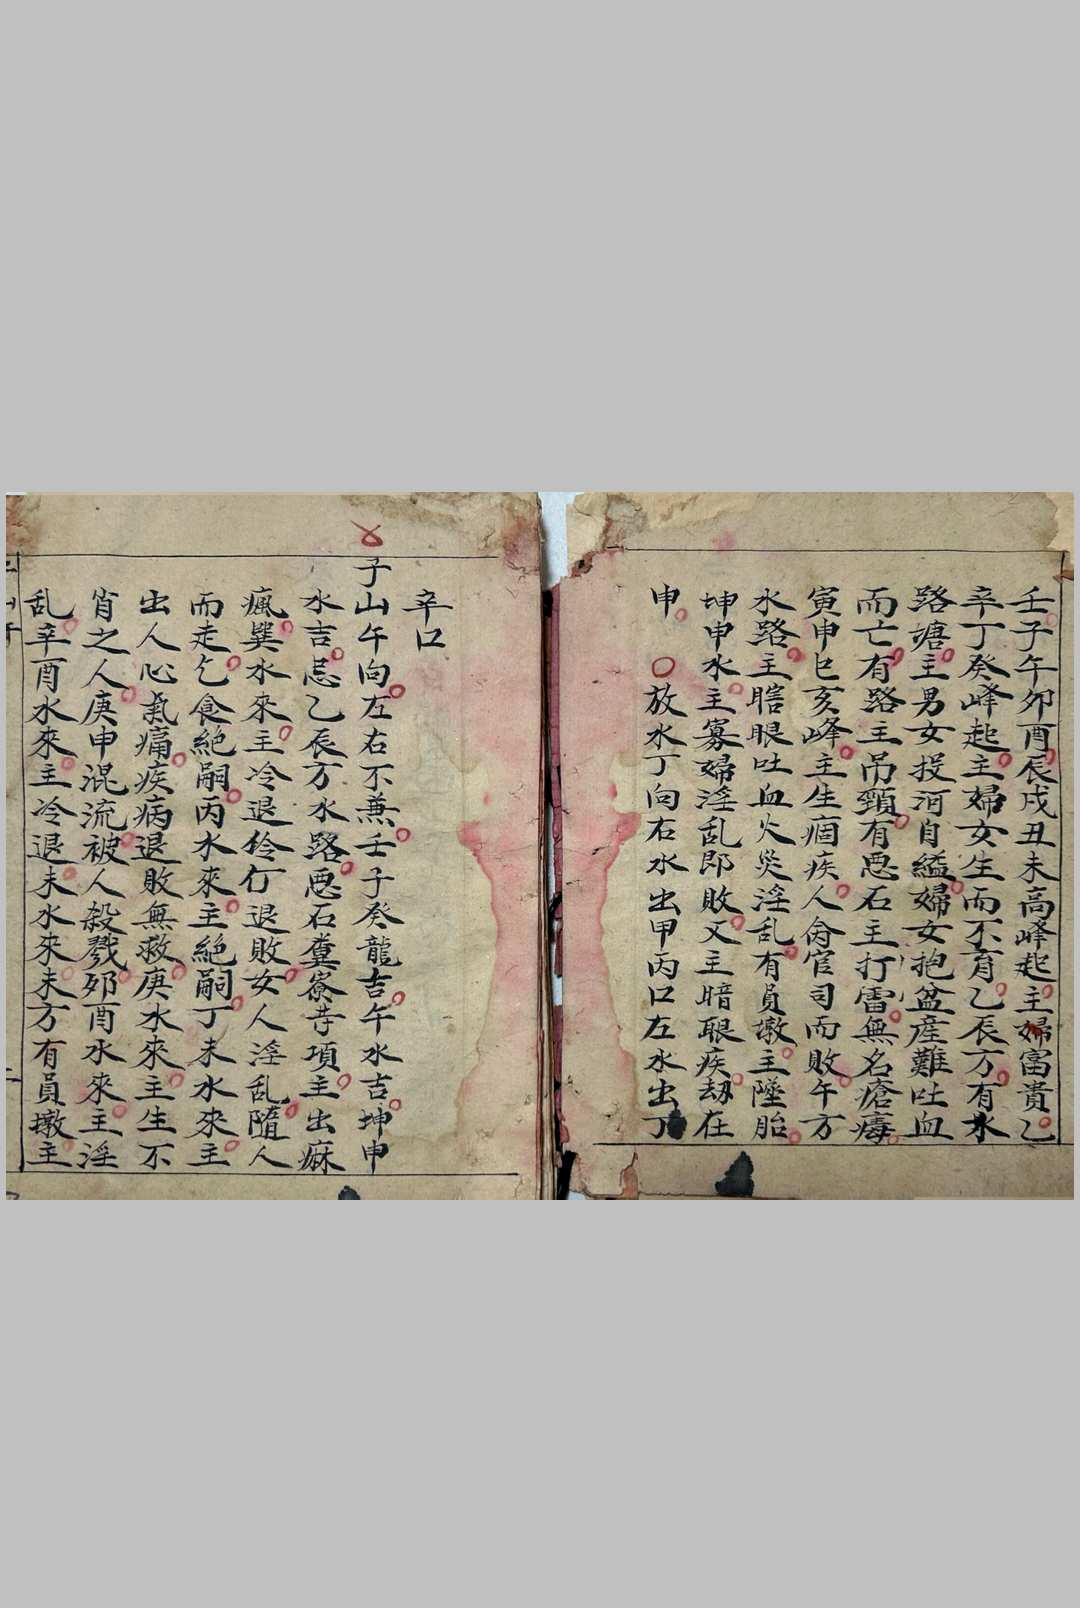 壬子午卯酉辰戌丑未高峰起主婦富貴乙
辛丁癸峰起主婦女生而不育乙辰方有水
路塘主男女投河自縊婦女抱盆産難吐血
而亡有路主吊頸有悪石主打雷無名瘡毒
寅申巳亥峰主生痼疾人俞官司而敗午方
水路主瞎眼吐血火災淫乱有員墩主墜胎
坤申水主寡婦淫乱即敗又主暗眼疾刼在
申 放水丁向右水出甲丙口左水出丁
辛口
子山午向左右不兼壬子癸龍吉午水吉坤申
水吉忌乙辰方水路悪石糞寮寺項主出麻
瘋巽水來主冷退伶仃退敗女人淫乱隨人
而走乞食絶嗣丙水來主絶嗣丁未水來主
出人心氣痛疾病退敗無救庚水來主生不
肖之人庚申混流被人殺戮夘酉水來主淫
乱辛酉水來主冷退未水來未方有員墩主